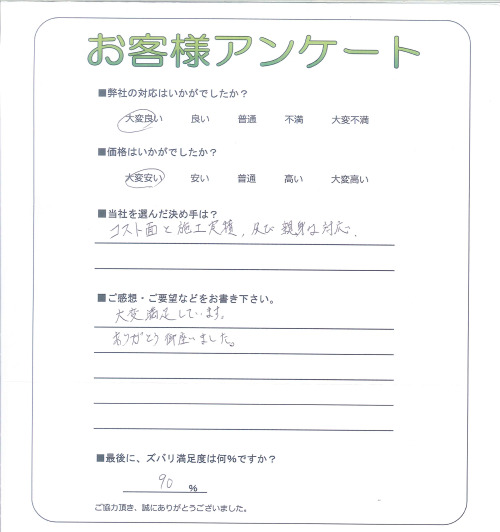 お客様アンケート
■弊社の対応はいかがでしたか？
大変良い 良い 普通 不満 大変不満
■価格はいかがでしたか？
大変安い 安い 普通 高い 大変高い
■当社を選んだ決め手は？
コスト面と施工実積、及び親身な対応。
■ご感想・ご要望などをお書き下さい。
大変満足しています。
ありがとう御座いました。
■最後に、ズバリ満足度は何％ですか？
90 %
ご協力頂き、誠にありがとうございました。